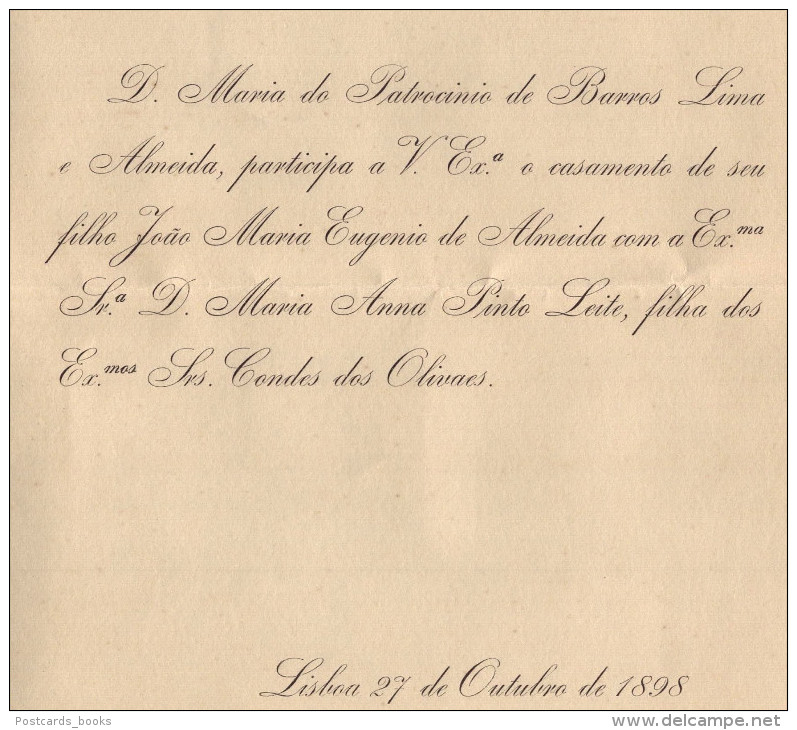 D. Maria do Patrocinio de Barros Lima
e Almeida, participa a V. Ex.ª o casamento de seu
filho João Maria Eugenio de Almeida com a Ex.ma
Sr.ª D. Maria Anna Pinto Leite, filha dos
Ex.mos Srs. Condes dos Olivaes.
Lisboa 27 de Outubro de 1898
Postcards_books
delcampe.net